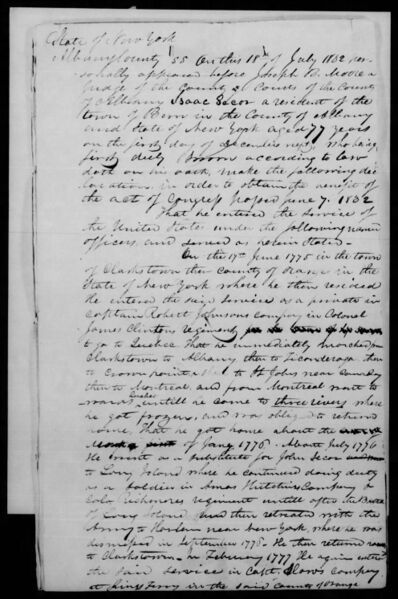 State of New York
Albany County SS On this 18th of July 1832 per-
sonally appeared before Joseph B. Moore a
Judge of the County Courts of the County
of Albany Isaac Secor a resident of the
town of Bern in the County of Albany
and State of New York aged 77 years
on the first day of December next, who being
first duly Sworn according to law
doth on his oath, make the following dec
laration, in order to obtain the benefit of
the act of Congress passed June 7. 1832
That he entered the service of
the United States under the following named
officers and served as herein stated—
On the 17th June 1775 in the town
of Clarkstown then county of Orange in the
State of New York where he then resided
He entered the said service as a private in
Captain Robert Johnsons company in Colonel
James Clinton regiment
to go to Quebec That he immediately marched from
Clarkstown to Albany then to Ticonderoga then
to Crown point to St Johns near Canada
then to Montreal, and from Montreal went to
wards Quebec untill he come to three rivers where
he got frozen, and was obliged to return
home, That he got home about the
of Jany 1776. About July 1776
He went as a substitute for John Secor
to Long Island where he continued doing duty
as a soldier in Amos Hutchins Company &
Colo regiment untill after the Battle
of Long Island and then retreated with the
Army to Harlem near New York where he was
dismissed in September 1776. He then returned
to Clarkstown. In February 1777 He again entered
the said service in Capt. Company
at Kings Ferry in the said County of Orange